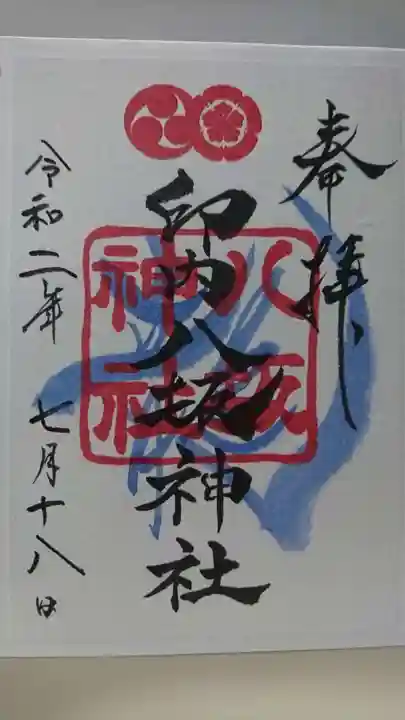 奉拝
印内八坂神社
八坂
神社
令和二年 七月十八日